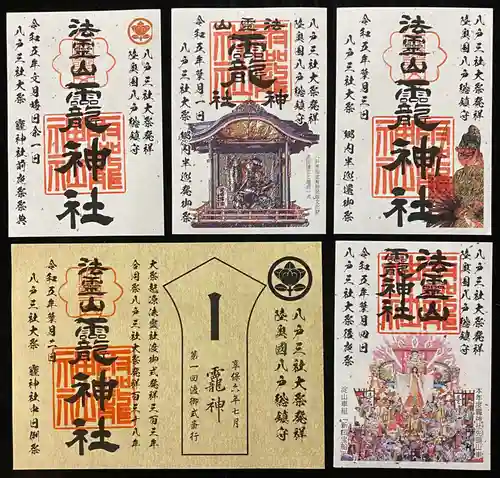 八戸三社大祭発祥
陸奥国八戸総鎮守
法霊山
龗神社
八戸三社大祭 龗神社前夜祭祭典
八戸三社大祭発祥
陸奥国八戸総鎮守
法霊山
龗神社
令和五年葉月一日
八戸三社大祭
八戸三社大祭発祥
陸奥国八戸総鎮守
法霊山
龗神社
令和五年葉月三日
八戸三社大祭
八戸三社大祭発祥
陸奥國八戸総鎮守
享保六年七月
龗神
第一回渡御式斎行
大祭起源法霊社渡御式発祥三百三年
合同祭八戸三社大祭発祥百三十八年
法霊山
龗神社
令和五年葉月二日
八戸三社大祭 龗神社中日例祭
八戸三社大祭発祥
陸奥国八戸総鎮守
法霊山
龗神社
令和五年葉月四日
八戸三社大祭後夜祭